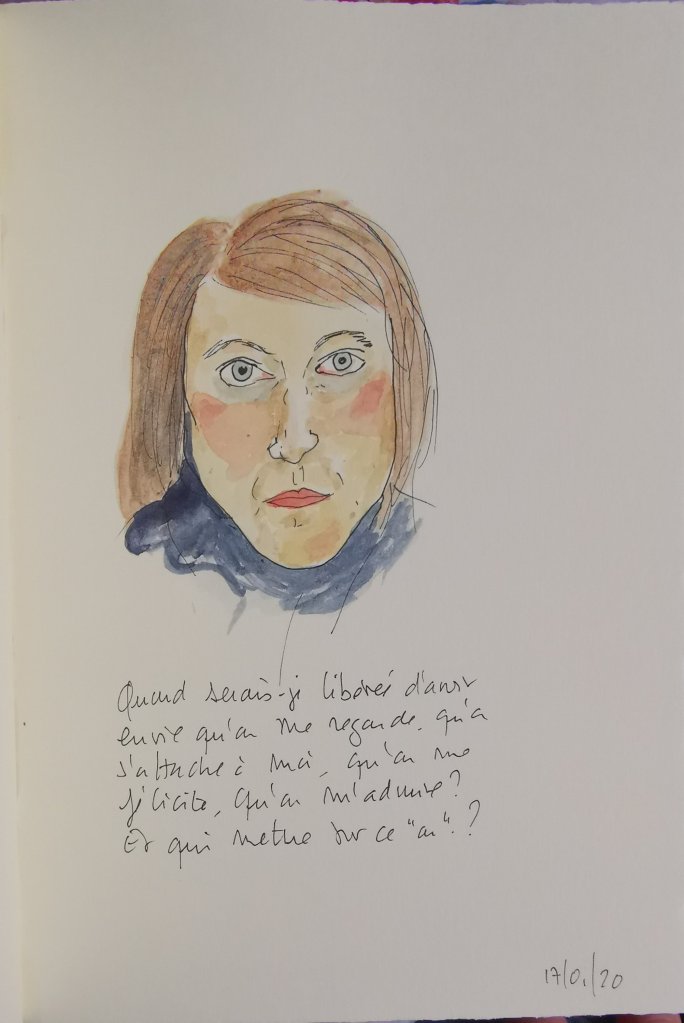 Quand serais-je libérée d'avoir
envie qu'on me regarde, qu'on
s'attache à moi, qu'on me
félicite, qu'on m'admire ?
Et qui mettre sur ce "on" ?
17/01/20